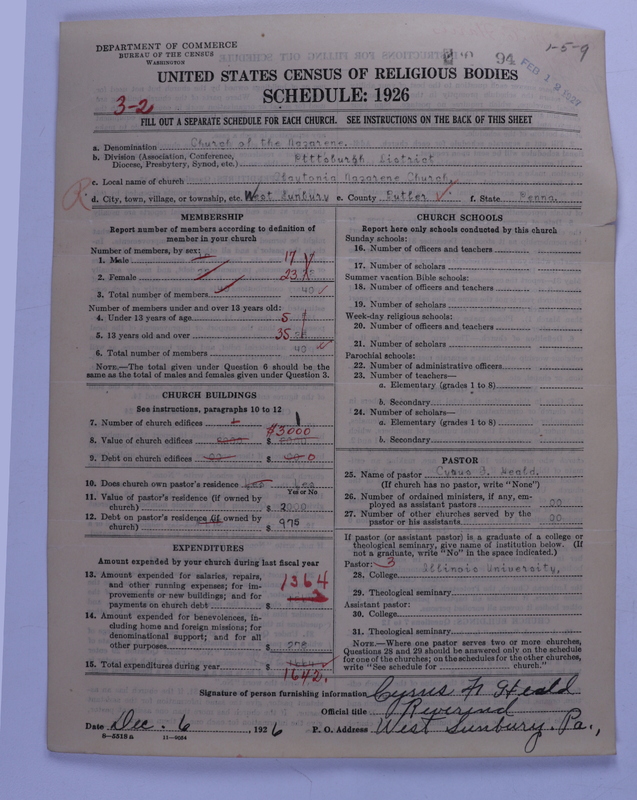 DEPARTMENT OF COMMERCE
BUREAU OF THE CENSUS
WASHINGTON
94
1-5-9
FEB 1 2 1927
UNITED STATES CENSUS OF RELIGIOUS BODIES
SCHEDULE: 1926
3-2
FILL OUT A SEPARATE SCHEDULE FOR EACH CHURCH. SEE INSTRUCTIONS ON THE BACK OF THIS SHEET
a. Denomination Church of the Nazarene.
b. Division (Association, Conference, Diocese, Presbytery, Synod, etc.) Pittsburgh District
c. Local name of church Claytonia Nazarene Church
R
d. City, town, village, or township, etc. West Sunbury e. County Butler f. State Penna.
MEMBERSHIP
Report number of members according to definition of
member in your church
Number of members, by sex:
1. Male 17
2. Female 23
3. Total number of members 40
Number of members under and over 13 years old:
4. Under 13 years of age 5
5. 13 years old and over 35
6. Total number of members 40
NOTE.—The total given under Question 6 should be the
same as the total of males and females given under Question 3.
CHURCH BUILDINGS
See instructions, paragraphs 10 to 12
7. Number of church edifices 1
8. Value of church edifices $ $3000
9. Debt on church edifices $ 0
10. Does church own pastor's residence Yes Yes
Yes or No
11. Value of pastor's residence (if owned by
church) $ 2000
12. Debt on pastor's residence (if owned by
church) $ 975
EXPENDITURES
Amount expended by your church during last fiscal year
13. Amount expended for salaries, repairs,
and other running expenses; for im-
provements or new buildings; and for
payments on church debt $ 1364
14. Amount expended for benevolences, in-
cluding home and foreign missions; for
denominational support; and for all
other purposes $ 278
15. Total expenditures during year $
1642.
CHURCH SCHOOLS
Report here only schools conducted by this church
Sunday schools:
16. Number of officers and teachers
17. Number of scholars
Summer vacation Bible schools:
18. Number of officers and teachers
19. Number of scholars
Week-day religious schools:
20. Number of officers and teachers
21. Number of scholars
Parochial schools:
22. Number of administrative officers
23. Number of teachers—
a. Elementary (grades 1 to 8)
b. Secondary
24. Number of scholars—
a. Elementary (grades 1 to 8)
b. Secondary
PASTOR
25. Name of pastor Cyrus Heald.
(If church has no pastor, write "None")
26. Number of ordained ministers, if any, em-
ployed as assistant pastors 00
27. Number of other churches served by the
pastor or his assistants 00
If pastor (or assistant pastor) is a graduate of a college or
theological seminary, give name of institution below. (If
not a graduate, write "No" in the space indicated.)
Pastor: 3
28. College Illinois University,
29. Theological seminary
Assistant pastor:
30. College
31. Theological seminary
NOTE.—Where one pastor serves two or more churches,
Questions 28 and 29 should be answered only on the schedule
for one of the churches; on the schedules for the other churches,
write "See schedule for church."
Signature of person furnishing information Cyrus N Heald
Official title Reverind
Date Dec. 6, 1926 P. O. Address West Sunbury. Pa.,
8—5518 a 11—9084